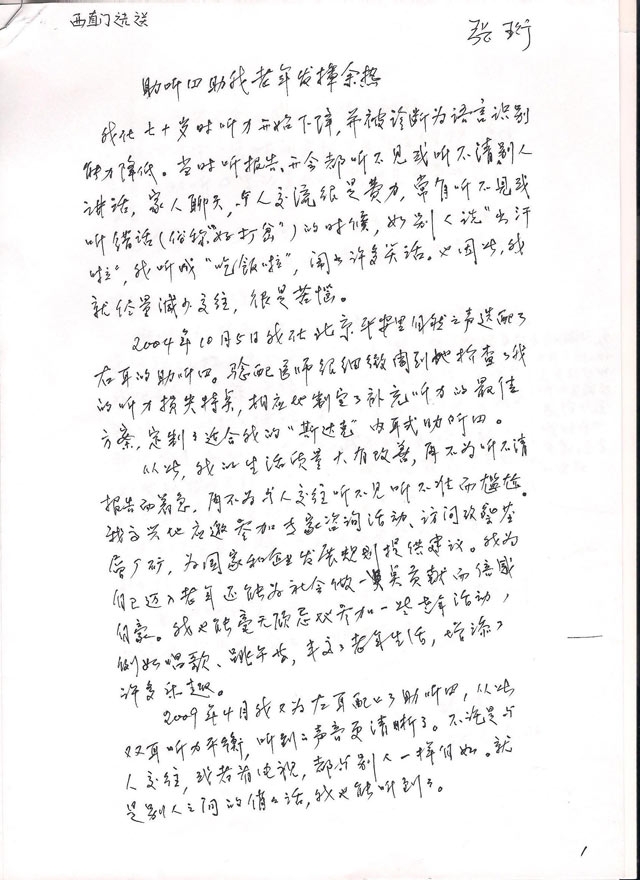 西直门诺诺
张珩
助听器助我老年发挥余热
我在七十岁时听力开始下降,并被诊断为语言识别
能力降低。当时听报告、开会都听不见或听不清别人
讲话,家人聊天,与人交流很是费力,常有听不见或
听错话(俗称“好打岔”)的时候,如别人说“出汗
啦”,我听成“吃饭啦”,闹出许多笑话。也因此,我
就尽量减少交往,很是苦恼。
2004年10月5日我在北京平安里自然之声选配了
右耳的助听器。验配医师很细微周到地检查了我
的听力损失特点,相应地制定了补充听力的最佳
方案,定制了适合我的“斯达克”内耳式助听器。
从此,我的生活质量大有改善,再不为听不清
报告而着急,再不为与人交往听不见听不准而尴尬。
我高兴地应邀参加专家咨询活动、访问改
层厂矿,为国家和企业发展规划提供建议。我为
自己迈入老年还能为社会做一点贡献而倍感
自豪。我也能毫无顾忌地参加一些老年活动,
例如唱歌、跳舞等,丰富了老年生活,增添了
许多乐趣。
2009年4月我又为左耳配上了助听器,从此
双耳听力平衡,听到的声音更清晰了。不论是与
人交往,或者看电视,都与别人一样自如。就
是别人之间的悄悄话,我也能听到了。
1